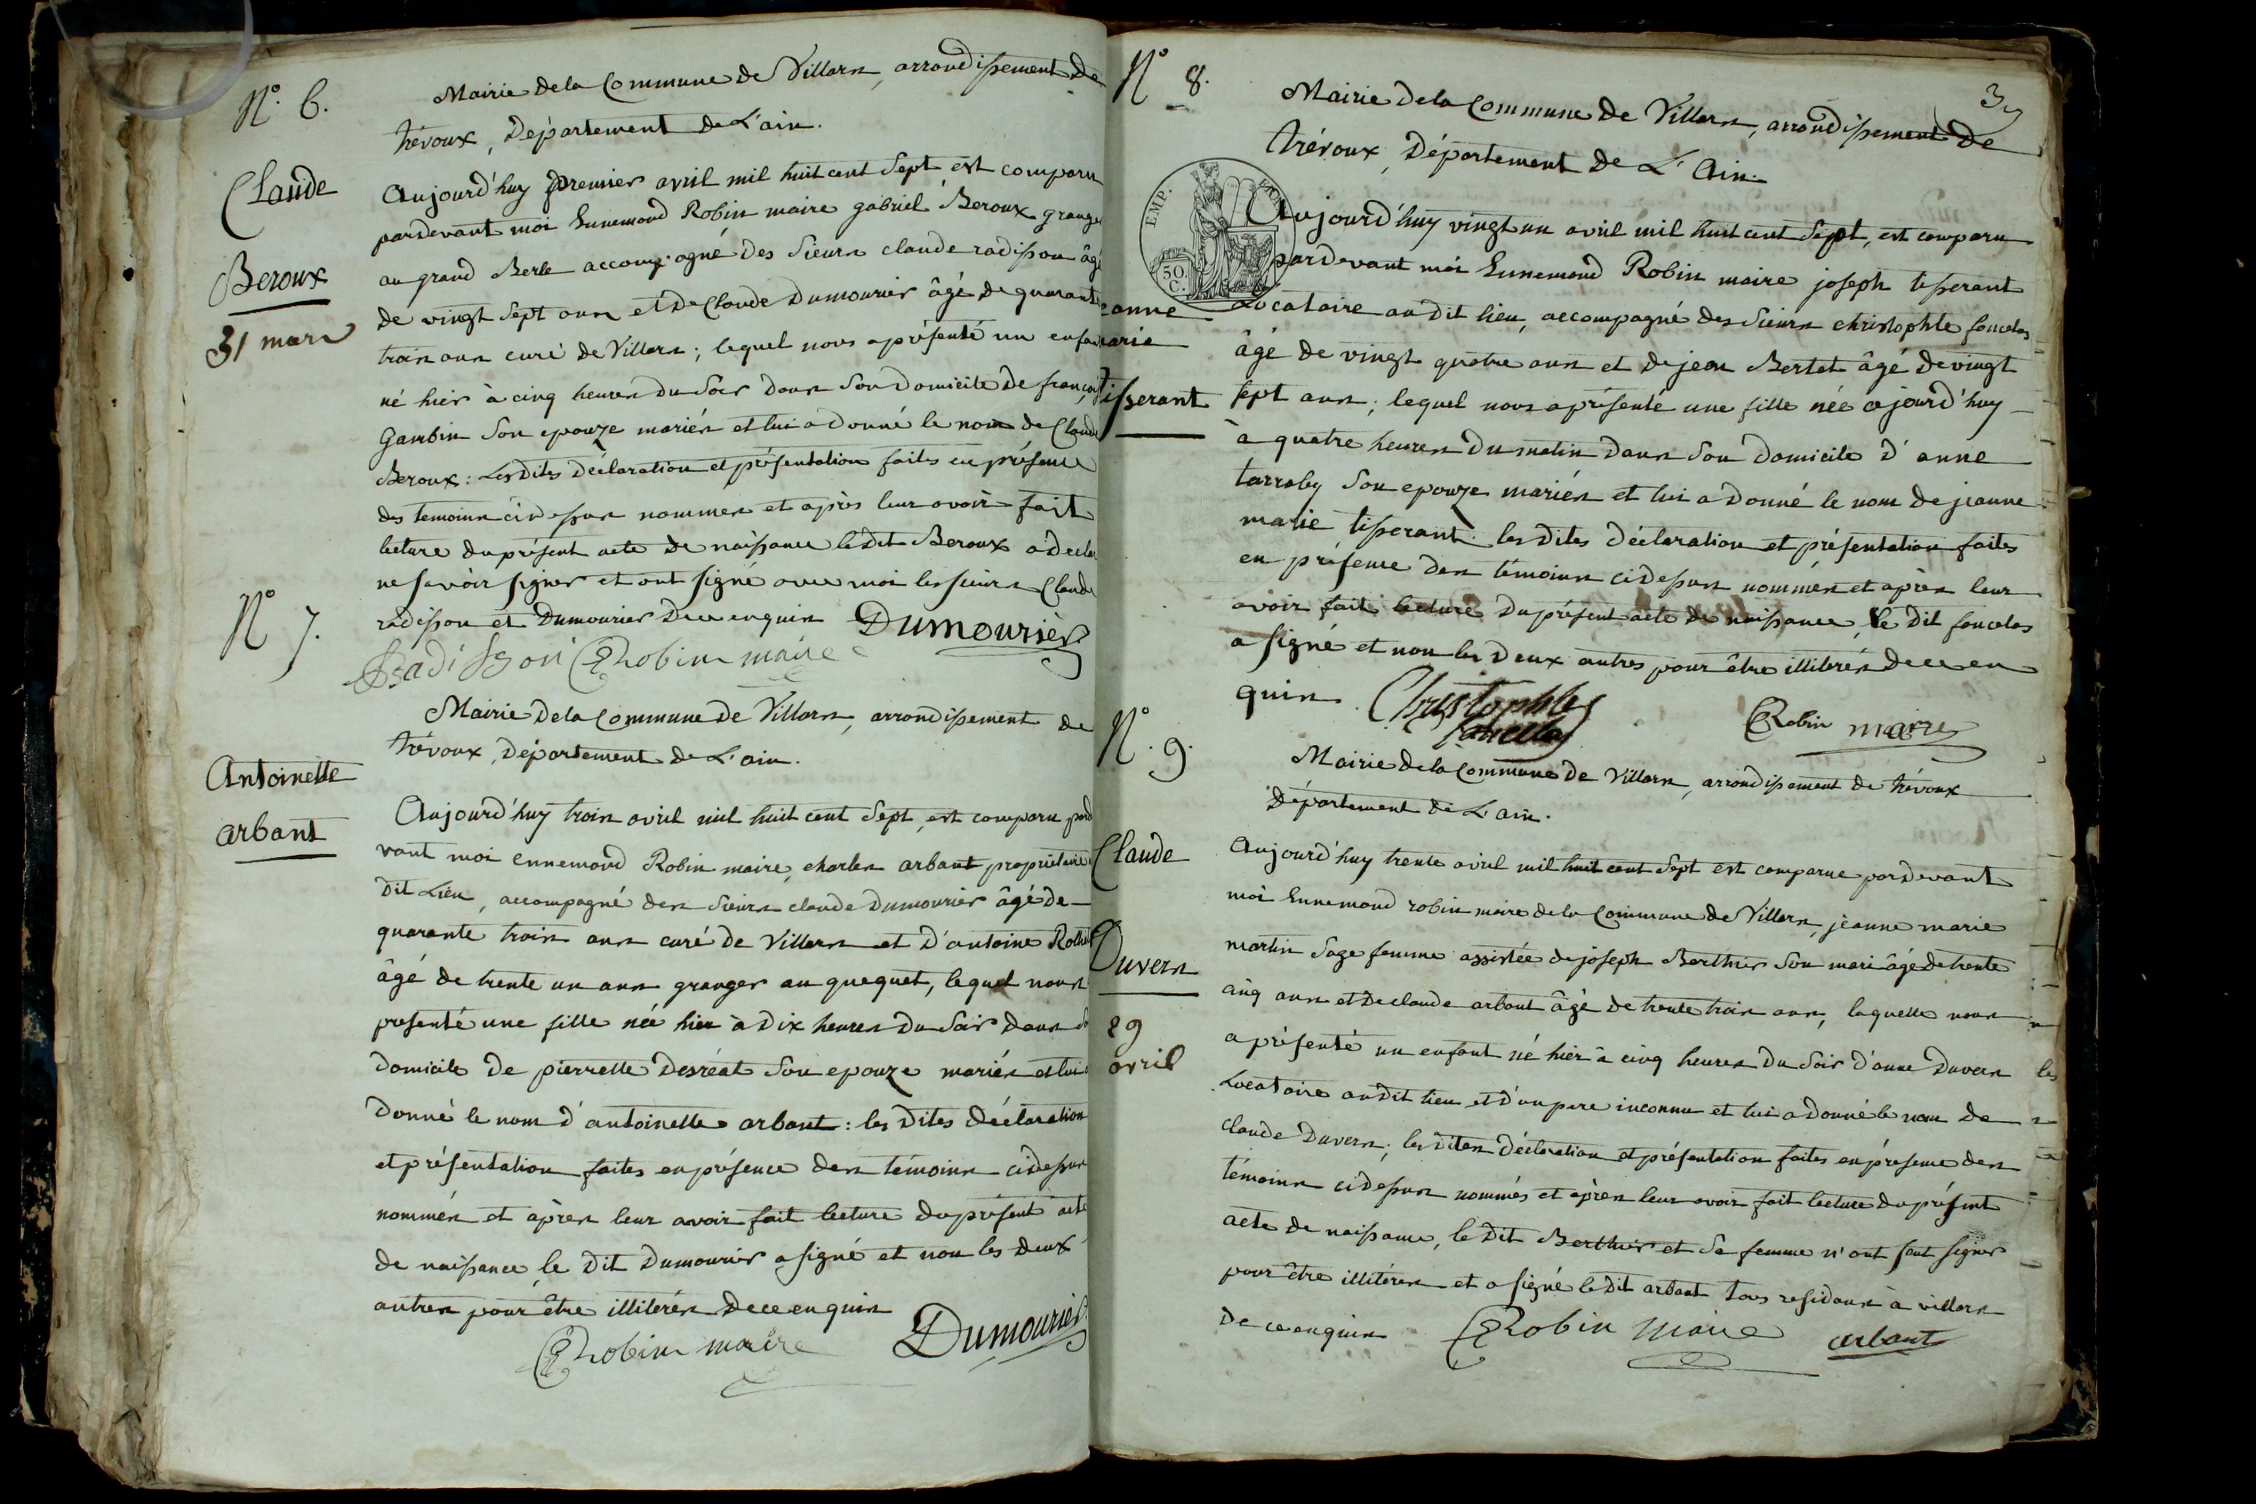 N.º 6.
Claude
Beroux
31 mars
Mairie de la Commune de Villars, arrondissement de
trévoux, Département de L'ain.
Aujourd'huy premier avril mil huit cent sept est comparu
pardevant moi Ennemond Robin maire gabriel Beroux grange
au grand Berle accompagné des sieurs claude radisson âgé
de vingt sept ans et de Claude Dumourier âgé de quarante
trois ans curé de Villars; lequel nous a présenté un enfan
né hier à cinq heures du soir dans son domicile de françoi
Gambin son epouze mariés et lui a donné le nom de Claude
Beroux: Lesdites déclaration et présentation faites en présence
des temoins cidessus nommes et après leur avoir fait
lecture du présent acte de naissance ledit Beroux a decla
ne savoir signer et ont signé avec moi les sieurs Claude
radisson et Dumourier de ce enquis Dumourier
Radisson ERobin maire
N.º 7.
Antoinette
arbant
Mairie de la Commune de Villars, arrondissement de
trévoux, Département de L'ain.
Aujourd'huy trois avril mil huit cent sept, est comparu pard
vant moi ennemond Robin maire, charles arbant propriétaire
dit Lieu, accompagné des sieurs claude Dumourier âgé de
quarante trois ans curé de Villars et d'antoine
âgé de trente un ans granger au quequet, lequel nous
presenté une fille née hier à dix heures du soir dans
domicile de pierrette Desréat son epouze mariés et lui
donné le nom d'antoinette arbant: les dites déclaration
et présentation faites en présence des témoins cidessus
nommés et après leur avoir fait lecture du présent acte
de naissance, le dit Dumourier a signé et non les deux
autres pour être illiterés de ce enquis
ERobin maire Dumourier
3
N.º 8.
eanne
marie
tisserant
Mairie de la Commune de Villars, arrondissement de
trévoux, Département de L'Ain.
EMP.
50.
C.
Aujourd'huy vingt un avril mil huit cent sept, est comparu
pardevant moi Ennemond Robin maire joseph tisserant
Locataire audit lieu, accompagné des sieurs christophle foucelas
âgé de vingt quatre ans et de jean Bertet âgé de vingt
sept ans; lequel nous a présenté une fille née ajourd'huy
à quatre heures du matin dans son domicile d'anne
tarraby son epouze mariés et lui a donné le nom de jeanne
marie tisserant: les dites déclaration et présentation faites
en présence des témoins cidessus nommés et après leur
avoir fait lecture du présent acte de naissance, le dit foucelas
a signé et non les deux autres pour être illiterés de ce en
quis. Christophle
foucelas ERobin maire
N.º 9.
Claude
Duvers
29
avril
Mairie de la Commune de Villars, arrondissement de trévoux
Département de L'ain.
Aujourd'huy trente avril mil huit cent sept est comparue pardevant
moi Ennemond robin maire de la Commune de Villars, jeanne marie
martin sage femme assistée de joseph Berthier son mari âgé de trente
cinq ans et de claude arbant âgé de trente trois ans, laquelle nous
a présenté un enfant né hier à cinq heures du soir d'anne Duvers
Locataire audit lieu et d'un pere inconnu et lui a donné le nom de
claude Duvers; les dites déclaration et présentation faites en présence des
témoins cidessus nommés et après leur avoir fait lecture du présent
acte de naissance, le dit Berthier et sa femme n'ont seut signer
pour être illitérés et a signé ledit arbant tous residans à villars
de ce enquis ERobin Maire arbant